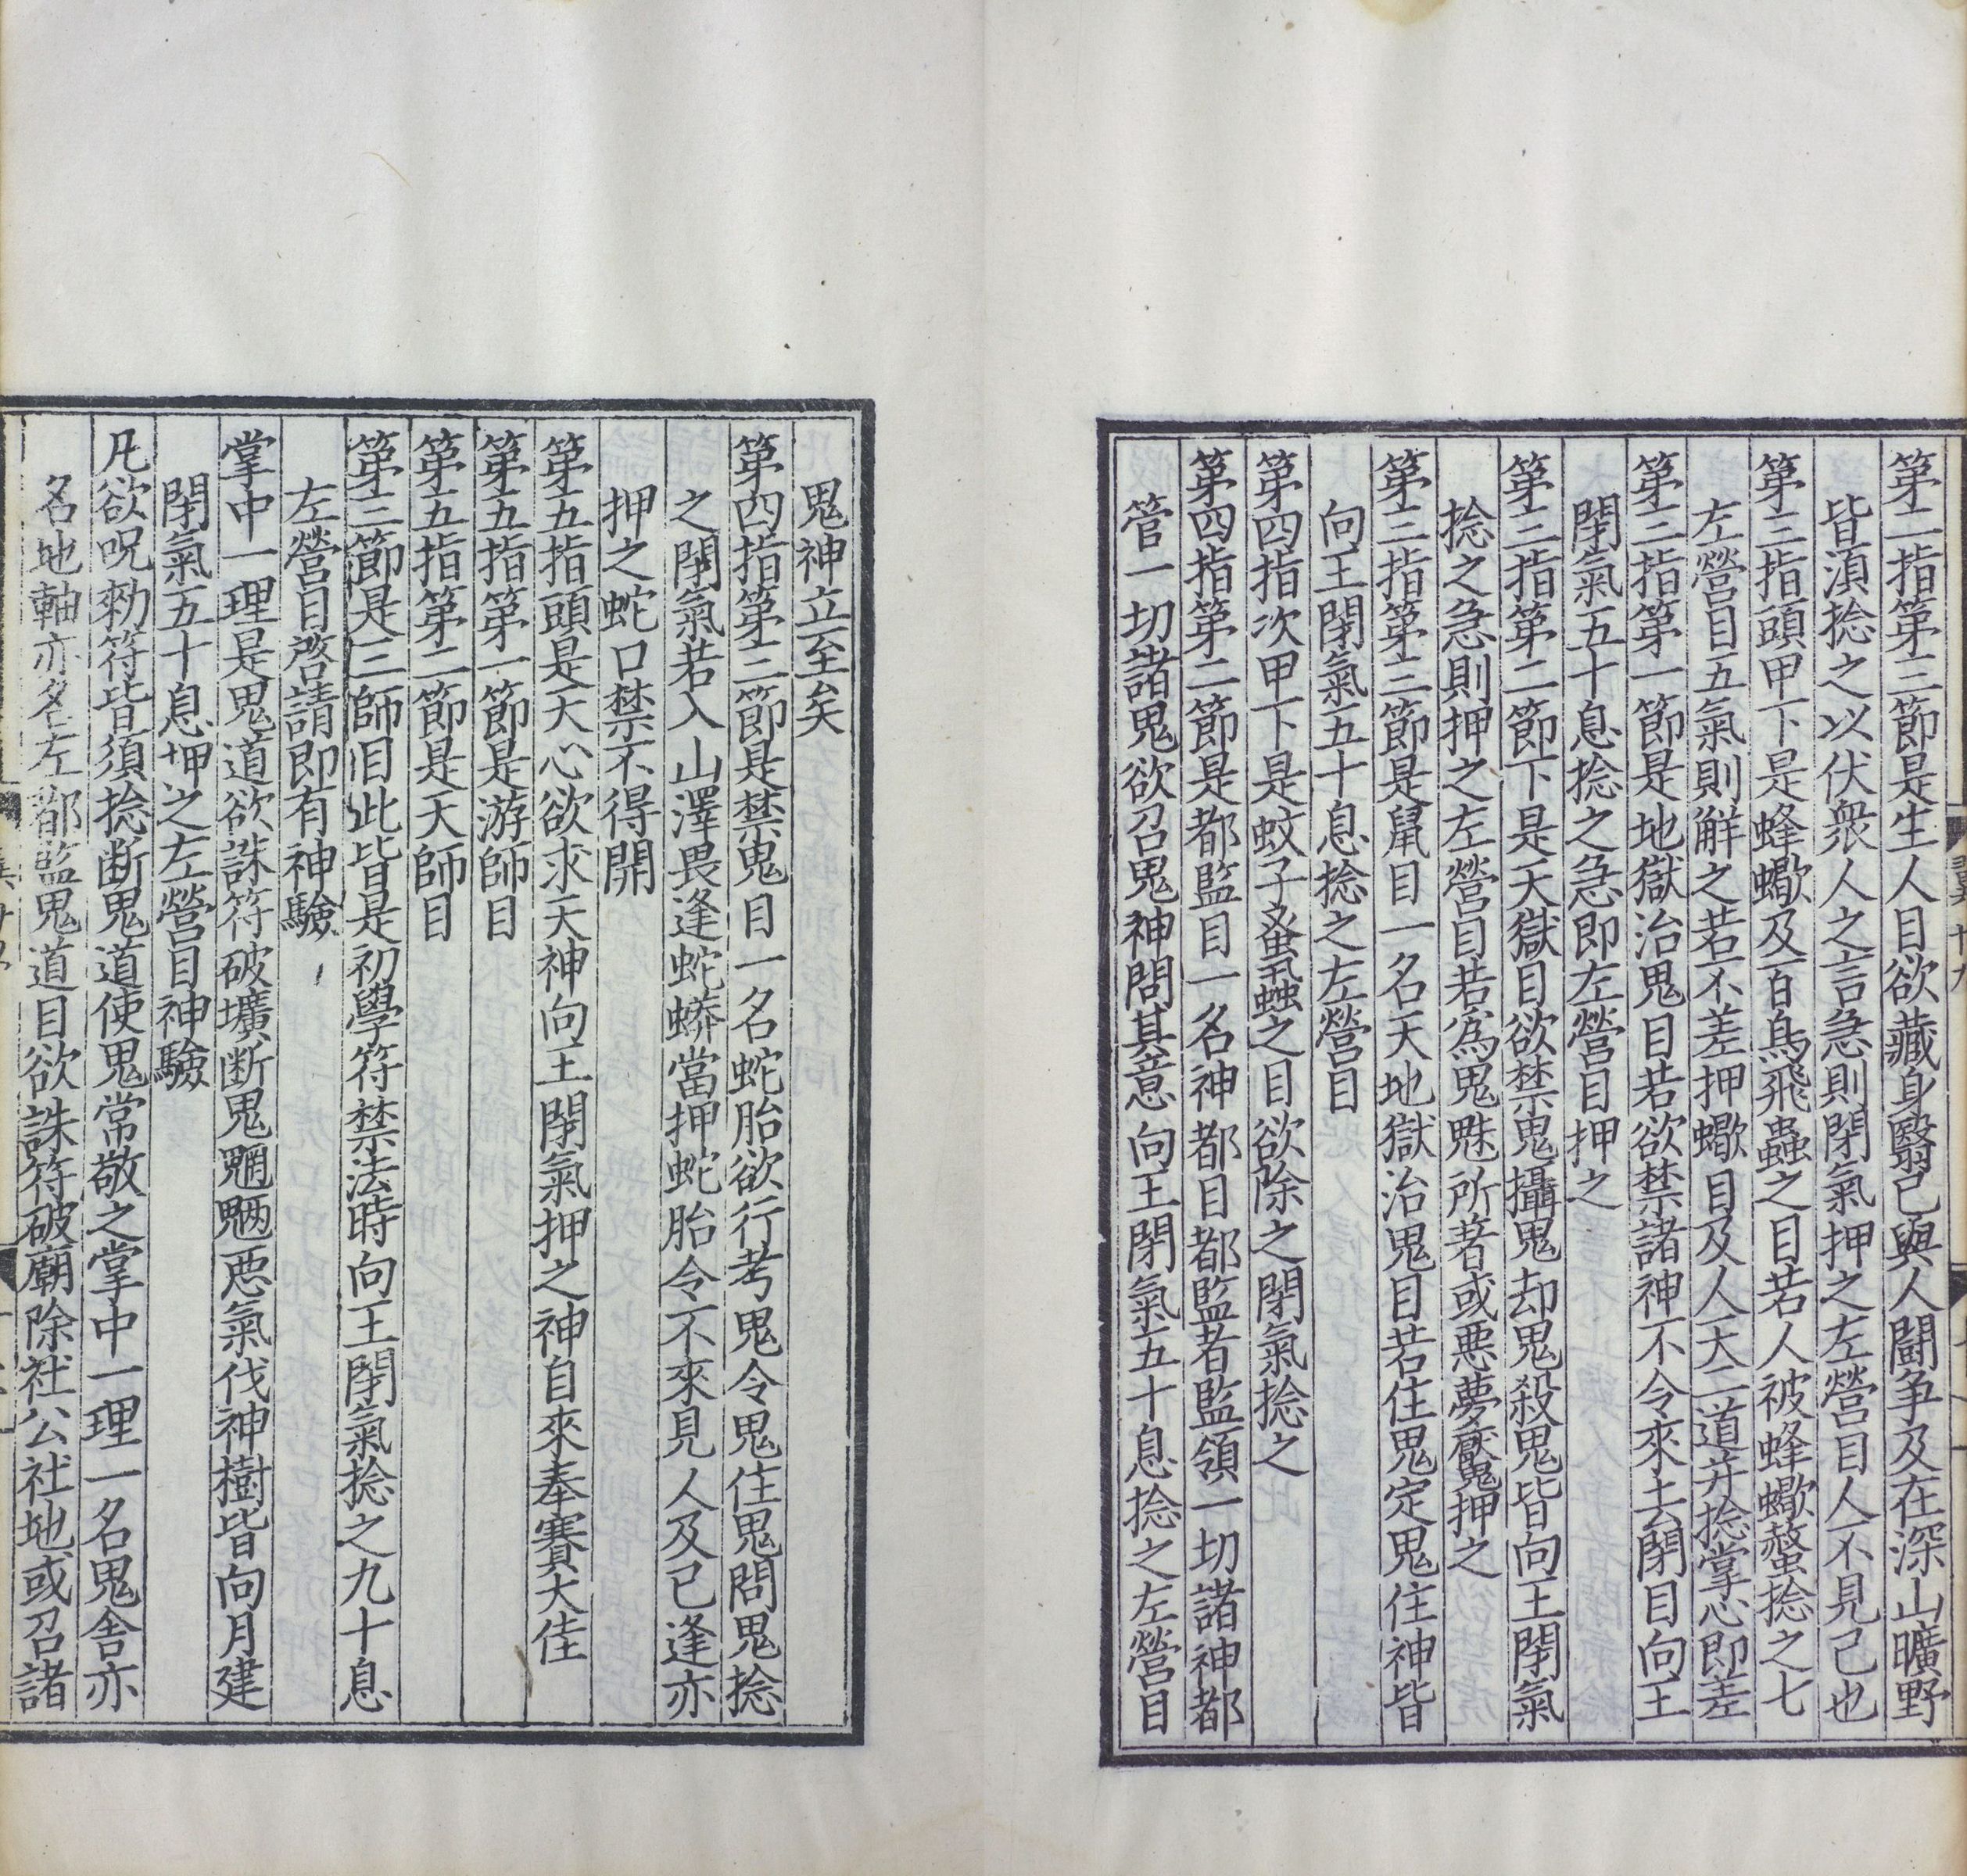 第二指第三節是生人目欲藏身翳己與人鬪争及在深山曠野
皆湏捻之以伏衆人之言急則閉氣押之左營目人不見己也
第三指頭甲下是蜂蠍及百鳥飛蟲之目若人被蜂蠍螫捻之七
左營目五氣則解之若不差押蠍目及人天二道并捻掌心即差
第三指第一節是地獄治鬼目若欲禁諸神不令來去閉目向王
閉氣五十息捻之急即左營目押之
第三指第二節下是天獄目欲禁鬼攝鬼却鬼殺鬼皆向王閉氣
捻之急則押之左營目若爲鬼魅所著或惡夢魘押之
第三指第三節是鼠目一名天地獄治鬼目若住鬼定鬼住神皆
向王閉氣五十息捻之左營目
第四指次甲下是蚊子蚤虱蟲之目欲除之閉氣捻之
第四指第二節是都監目一名神都目都監者監領一切諸神都
管一切諸鬼欲召鬼神問其意向王閉氣五十息捻之左營目
鬼神立至矣
第四指第三節是禁鬼目一名蛇胎欲行考鬼令鬼住鬼問鬼捻
之閉氣若入山澤畏逢蛇蟒當押蛇胎令不來見人及已逢亦
押之蛇口禁不得開
第五指頭是天心欲求天神向王閉氣押之神自來奉賽大佳
第五指第一節是游師目
第五指第二節是天師目
第三節是三師目此皆是初學符禁法時向王閉氣捻之九十息
左營目啓請即有神驗
掌中一理是鬼道欲誅符破壙断鬼魍魎惡氣伐神樹皆向月建
閉氣五十息押之左營目神驗
凡欲呪勑符皆須捻断鬼道使鬼常敬之掌中一理一名鬼舎亦
名地軸亦名左都監鬼道目欲誅符破廟除社公社地或召諸